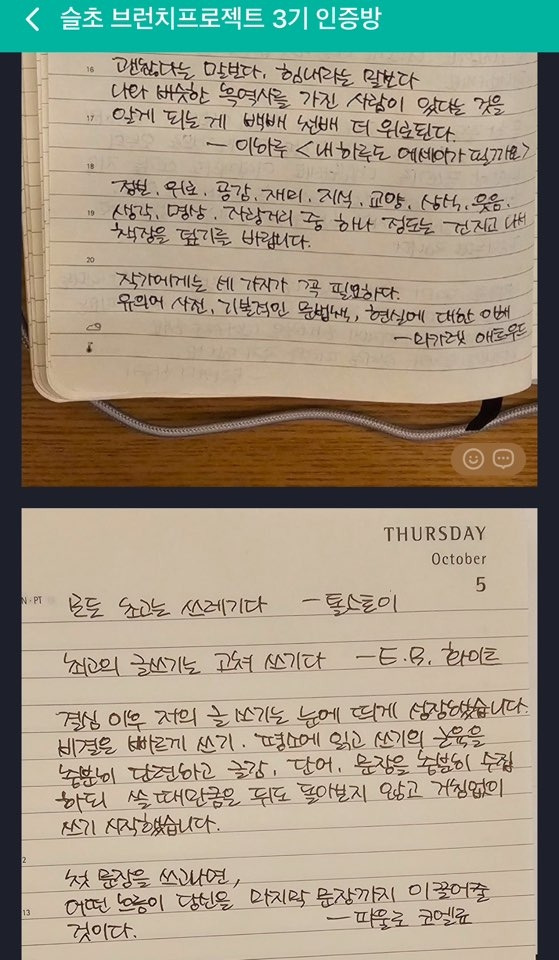 슬초 브런치프로젝트 3기 인증방
16
괜찮다는 말보다, 힘내라는 말보다
나와 비슷한 흑역사를 가진 사람이 있다는 것을
17
알게 되는 게 백배 천배 더 위로된다.
— 이하루 <내 하루도 에세이가 될까요>
18
정보, 위로, 공감, 재미, 지식, 교양, 상식, 웃음,
19
생각, 명상, 자랑거리 중 하나 정도는 건지고 나서
책장을 덮기를 바랍니다.
20
작가에게는 세 가지가 꼭 필요하다.
유의어 사전, 기본적인 문법책, 현실에 대한 이해
— 마가렛 애트우드
THURSDAY
October
5
모든 초고는 쓰레기다 — 톨스토이
최고의 글쓰기는 고쳐 쓰기다 — E.B. 화이트
결심 이후 저의 글 쓰기는 눈에 띄게 성장했습니다.
비결은 빠르게 쓰기. 평소에 읽고 쓰기의 근육을
충분히 단련하고 글감, 단어, 문장을 충분히 수집
하되 쓸 때만큼은 뒤도 돌아보지 않고 거침없이
쓰기 시작했습니다.
2
첫 문장을 쓰고나면,
어떤 노동이 당신을 마지막 문장까지 이끌어줄
13
것이다. — 파울로 코엘료